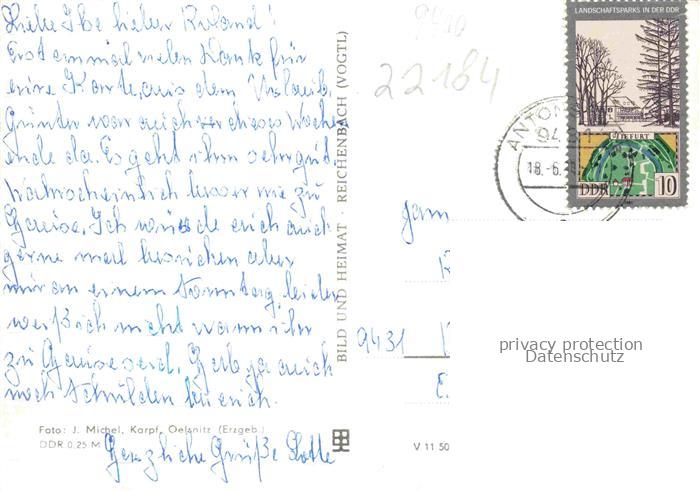 Liebe Ilse lieber Roland!
Erst einmal vielen Dank für
eure Karte, aus dem Urlaub.
Günter war auch vor dieses Wochen
ende da. Es geht ihm sehr gut,
wahrscheinlich besser wie zu
Hause. Ich würde euch auch
gerne mal besuchen aber
nur an einem Sonntag, leider
weiß ich nicht wann ihr
zu Hause seid. Hab ja auch
noch Schulden bei euch.
Herzliche Grüße Lotte
Foto: J. Michel, Karpf, Oelsnitz (Erzgeb.)
DDR 0,25 M
BILD UND HEIMAT · REICHENBACH (VOGTL)
V 11 50
22184
LANDSCHAFTSPARKS IN DER DDR
TIEFURT
DDR 10
ANTONS
18.-6.
9431
privacy protection
Datenschutz